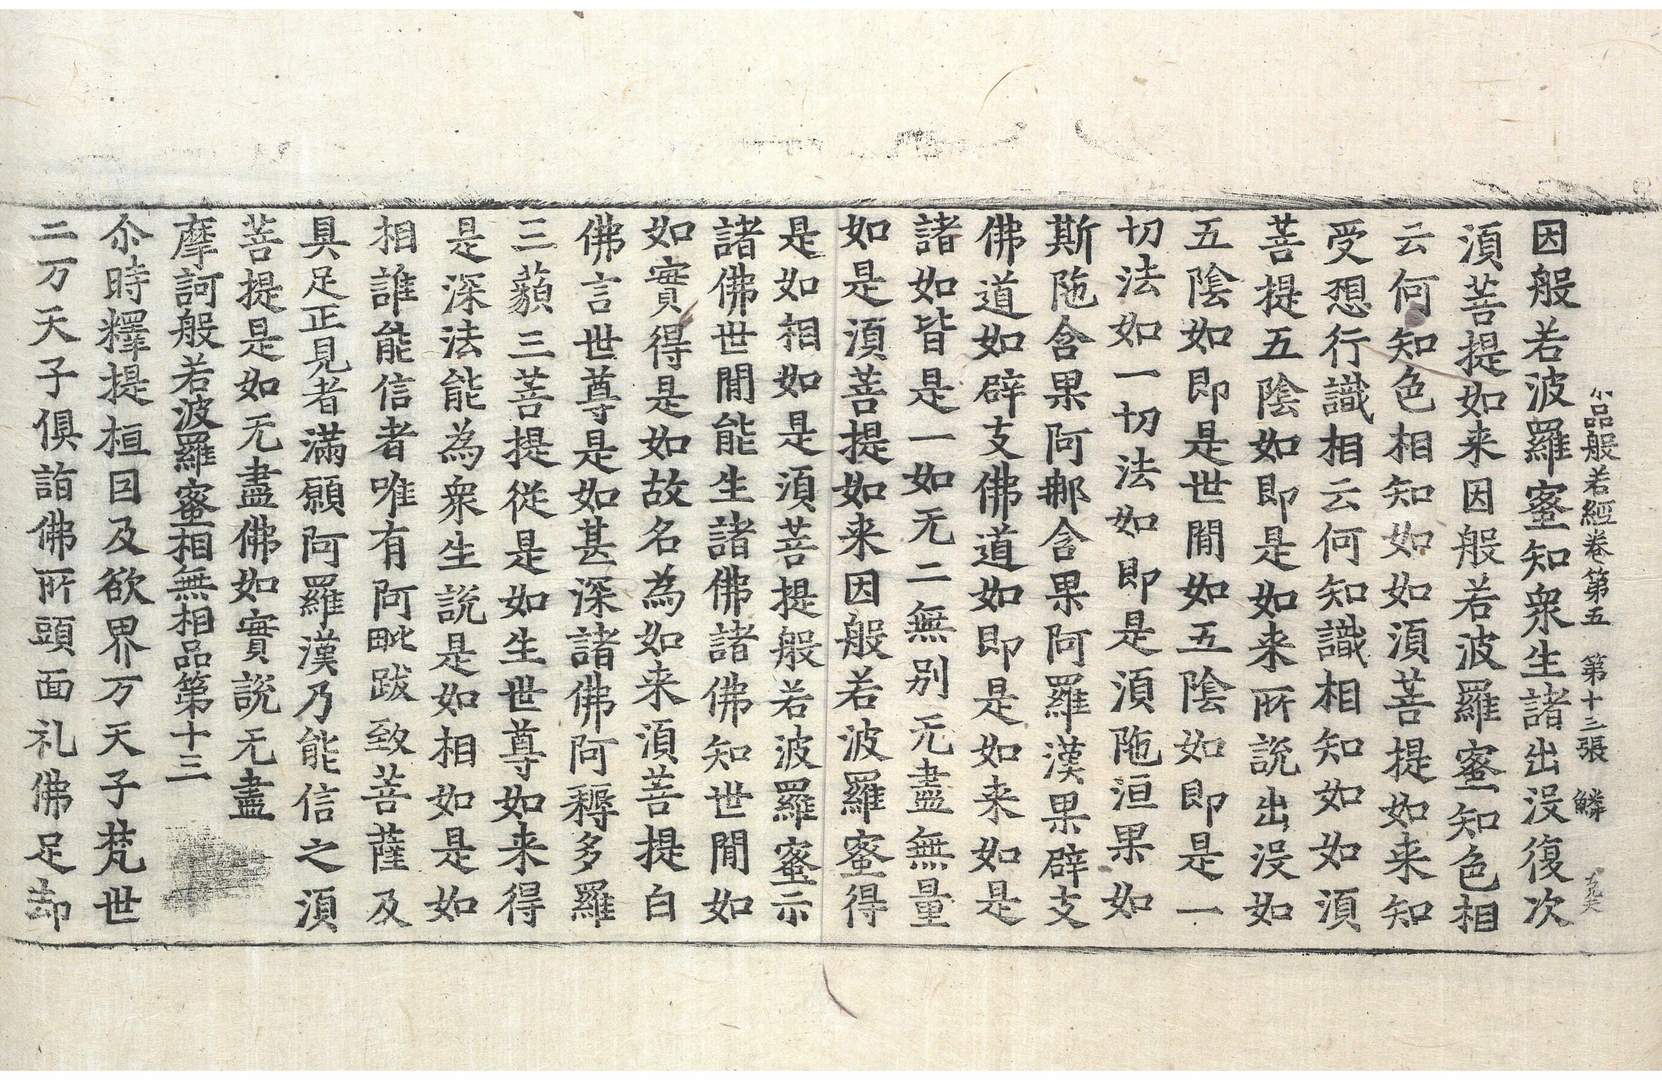 小品般若經卷第五 第十三張 鱗
因般若波羅蜜知衆生諸出没復次
湏菩提如来因般若波羅蜜知色相
云何知色相知如如湏菩提如来知
受想行識相云何知識相知如如湏
菩提五陰如即是如来所說出没如
五陰如即是世間如五陰如即是一
切法如一切法如即是湏陁洹果如
斯陁含果阿那含果阿羅漢果辟支
佛道如辟支佛道如即是如来如是
諸如皆是一如无二無别无盡無量
如是湏菩提如来因般若波羅蜜得
是如相如是湏菩提般若波羅蜜示
諸佛世間能生諸佛諸佛知世間如
如實得是如故名為如来湏菩提白
佛言世尊是如甚深諸佛阿耨多羅
三藐三菩提從是如生世尊如来得
是深法能為衆生說是如相如是如
相誰能信者唯有阿毗跋致菩薩及
具足正見者滿願阿羅漢乃能信之湏
菩提是如无盡佛如實說无盡
摩訶般若波羅蜜相無相品第十三
尒時釋提桓因及欲界万天子梵世
二万天子俱詣佛所頭面礼佛足却